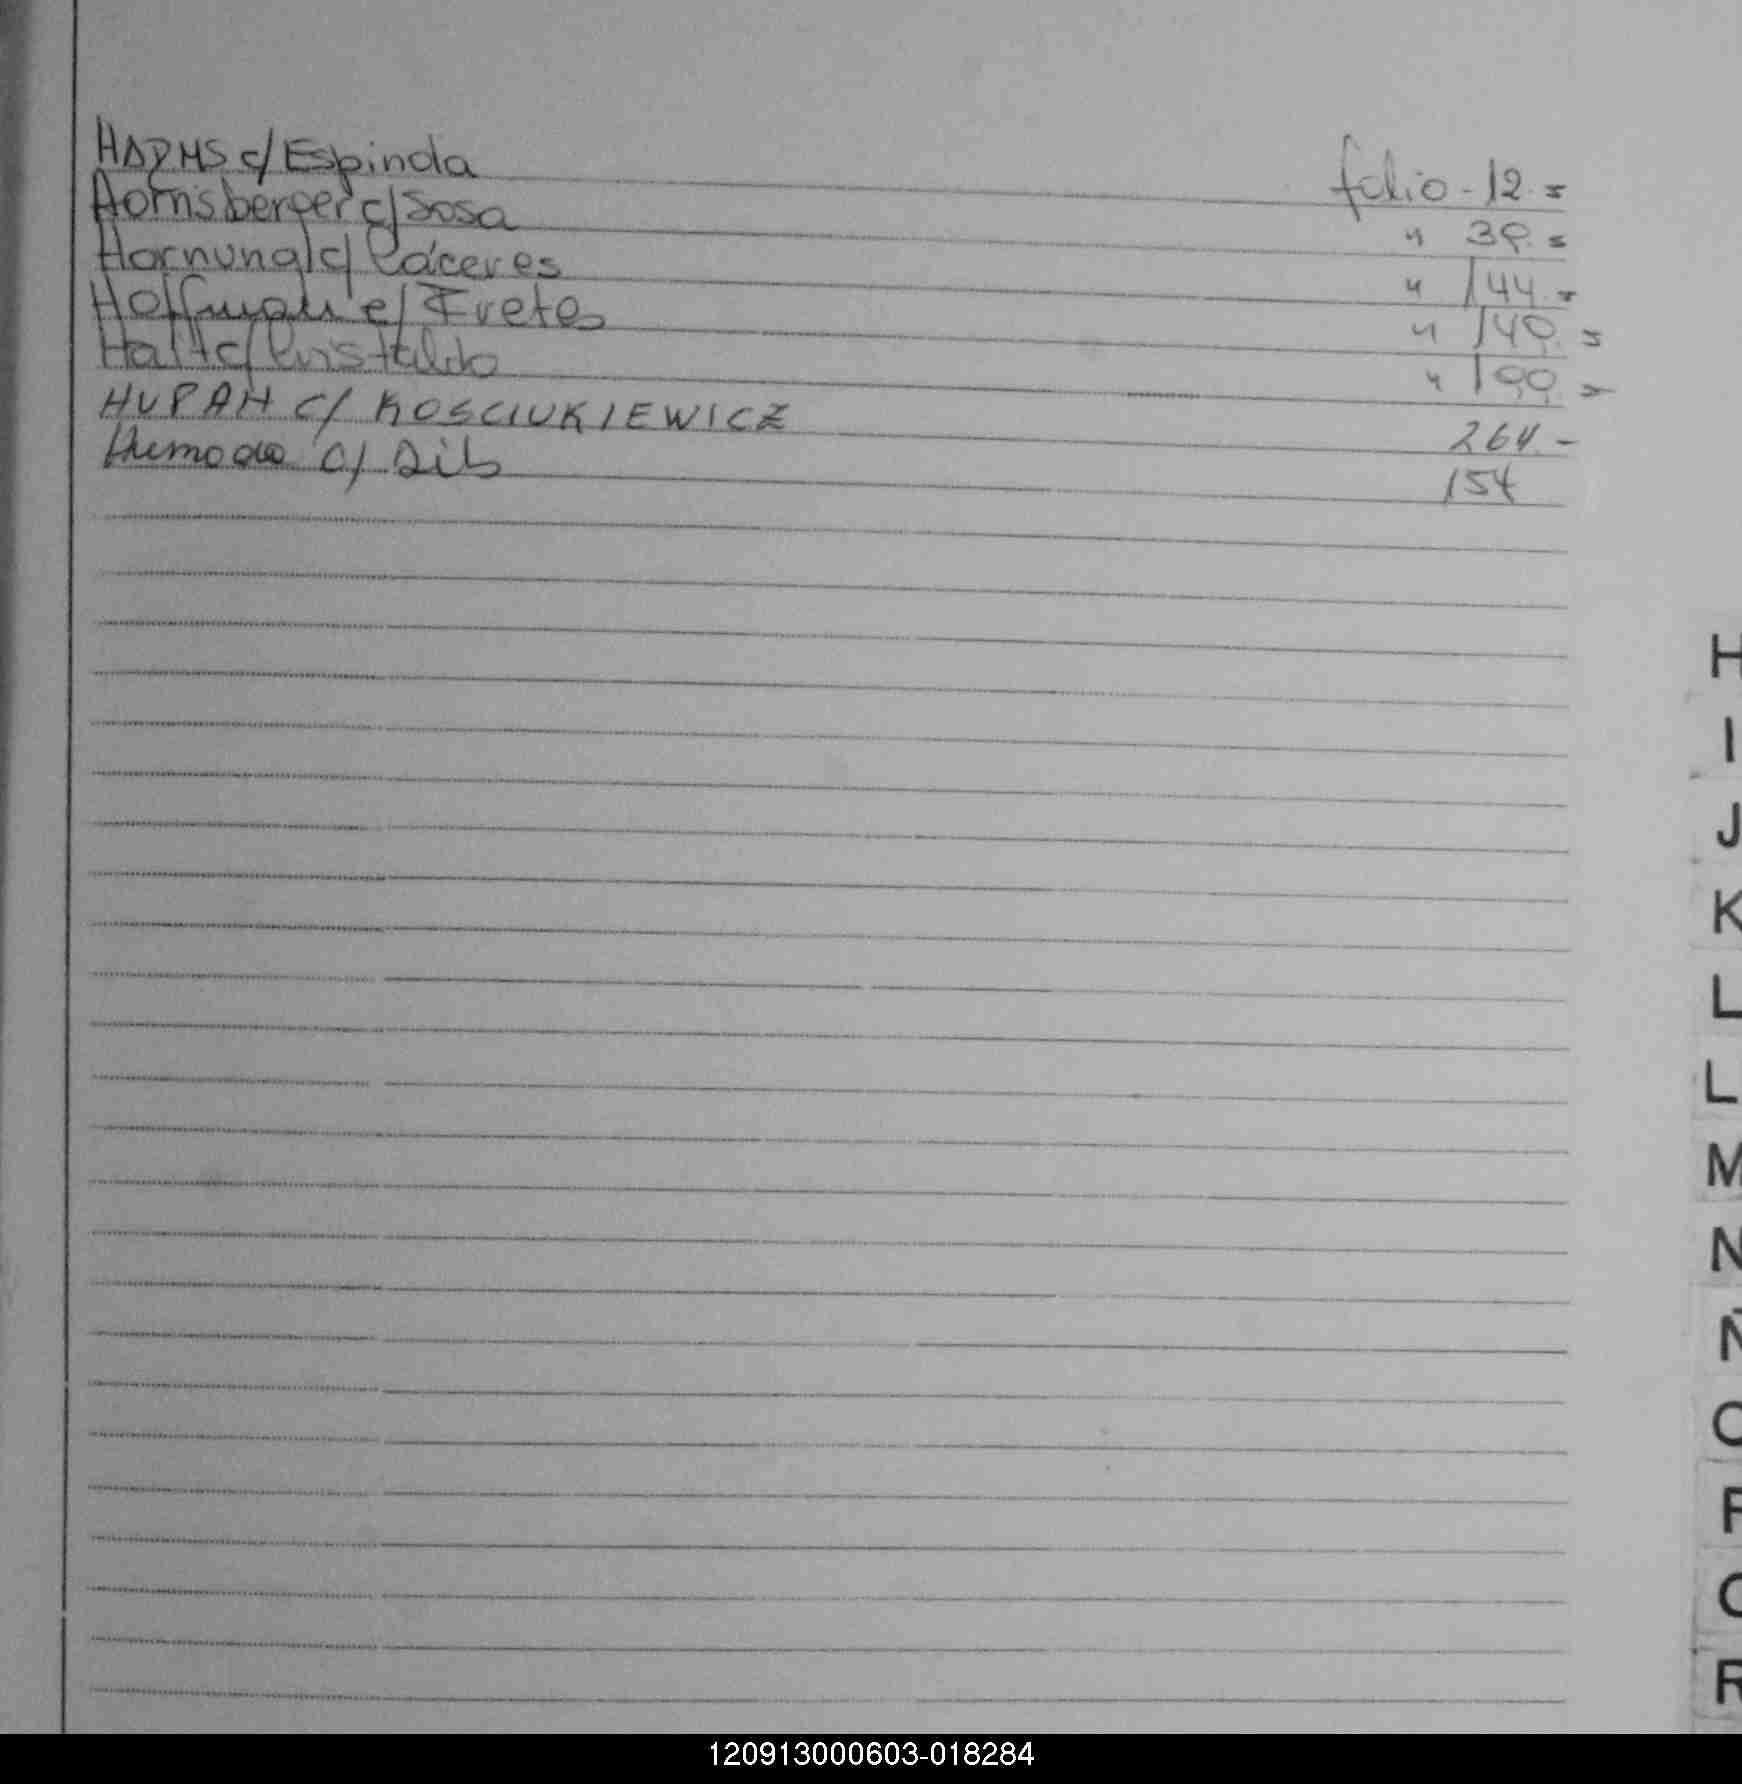 HARMS c/ Espinola folio - 12.=
Hornsberger c/ Sosa " 39.=
Hornung c/ Cáceres " 144.=
Hoffman c/ Fretes " 149.=
Haltt c/ Cristaldo " 199.=
HUPAH c/ KOSCIUKIEWICZ 264.-
c/ Dib 154
H
I
J
K
L
L
M
N
R
120913000603-018284